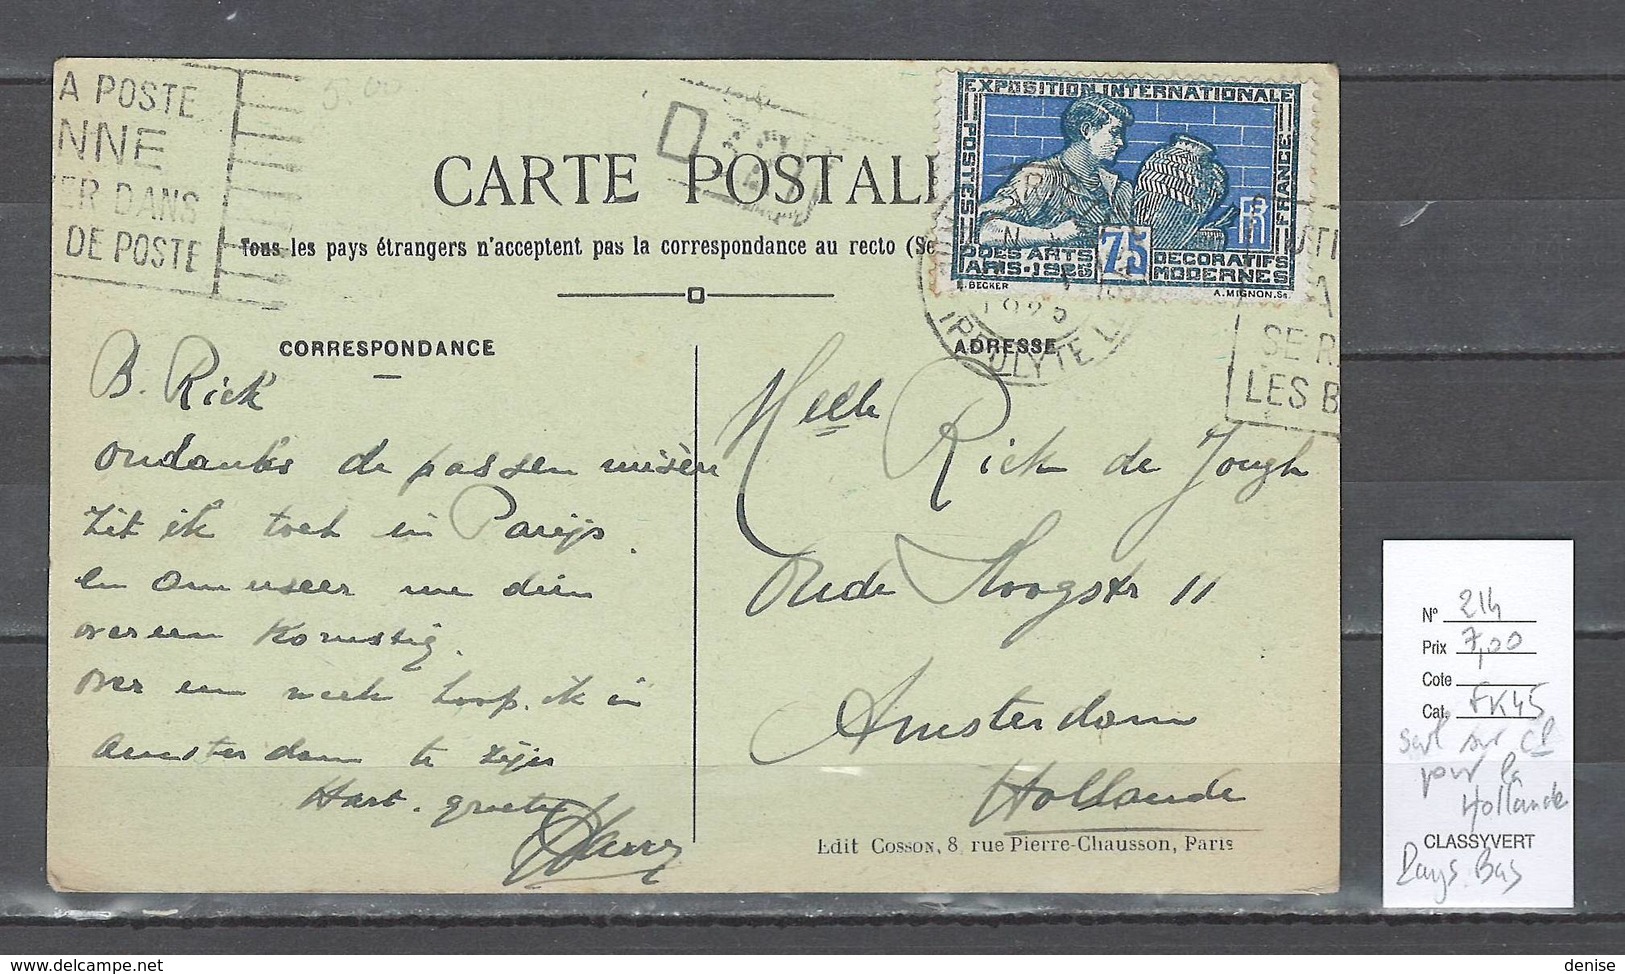 A POSTE
NNE
ER DANS
DE POSTE
CARTE POSTAL
Tous les pays étrangers n'acceptent pas la correspondance au recto (Se
EXPOSITION INTERNATIONALE
POSTES
FRANCE
RF
75
DES ARTS DECORATIFS
PARIS-1925 MODERNES
BECKER A. MIGNON. Sc.
UTI
A
SE R
LES B
CORRESPONDANCE
ADRESSE
B. Rick
ondanks de passen misère
zit ik toch in Parijs.
en amuseer me dien
overeen komstig.
over een week hoop ik in
Amsterdam te zijn
Hart. groeten
Harry
Melle Rick de Jongh
Oude Hoogstr 11
Amsterdam
Hollande
Edit Cosson, 8, rue Pierre-Chausson, Paris
N° 214
Prix 7,00
Cote
Cat. FK45
seul sur CP
pour la
Hollande
CLASSYVERT
Pays Bas
delcampe.net
denise